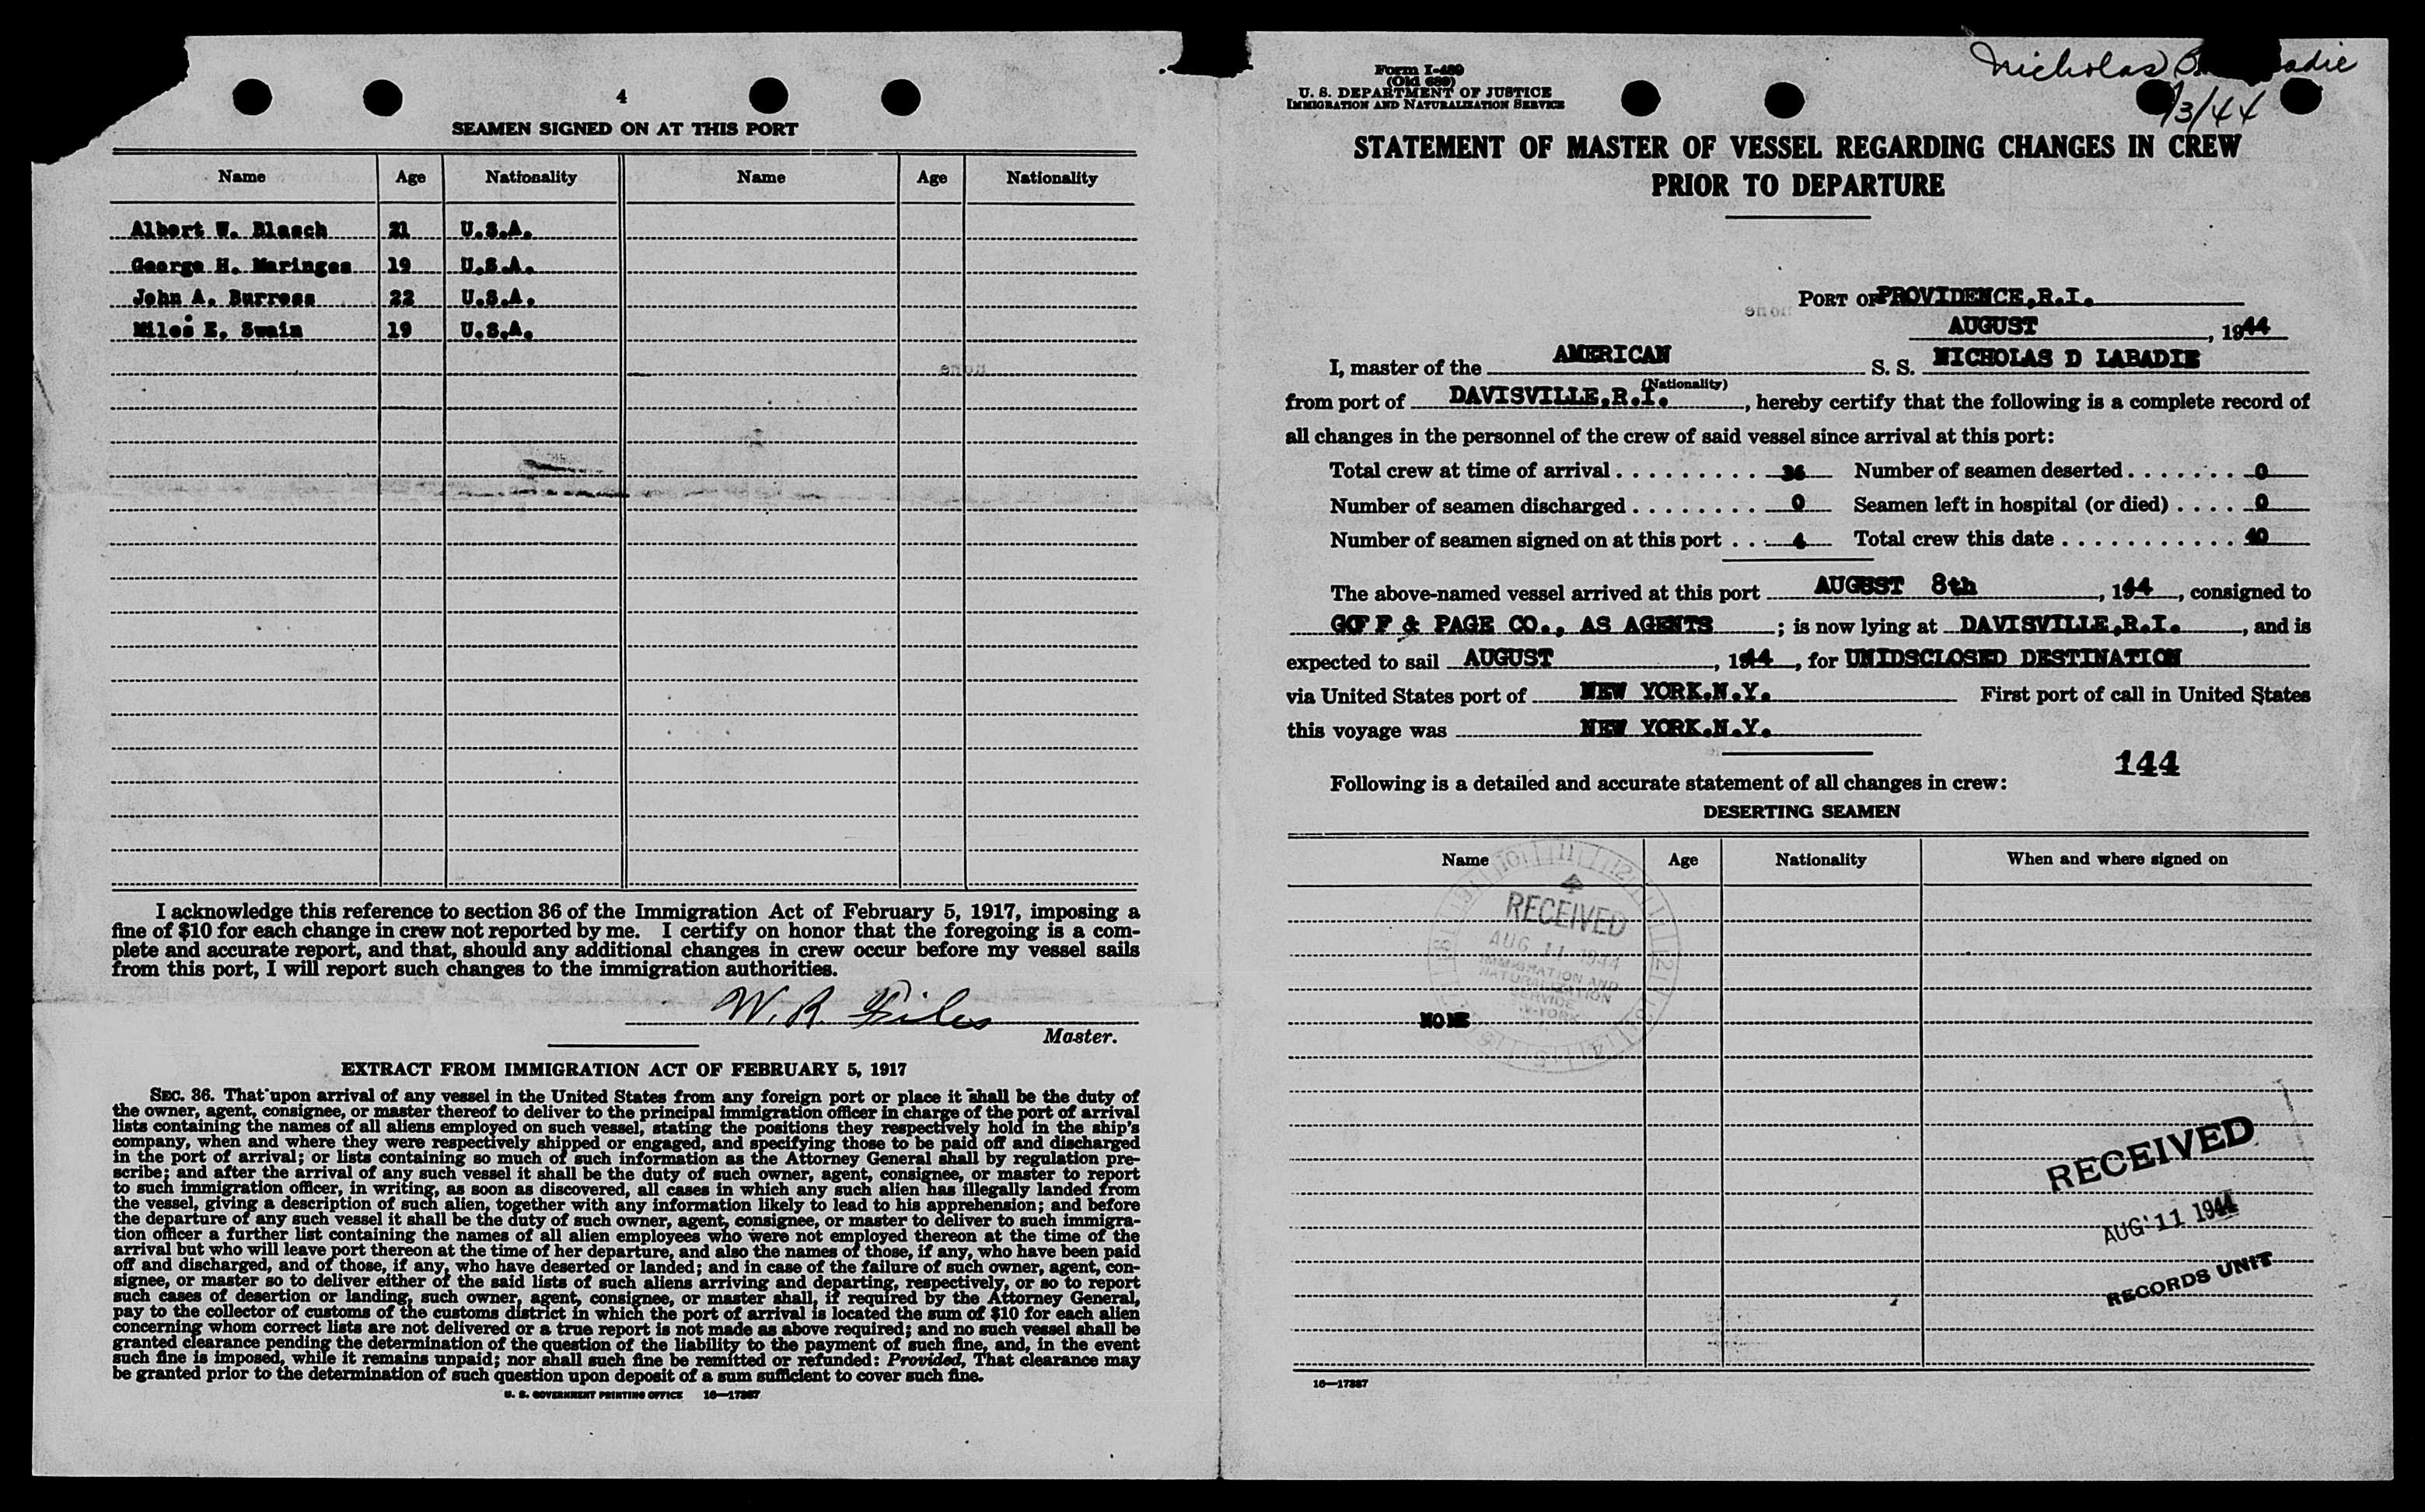 4
SEAMEN SIGNED ON AT THIS PORT
Name Age Nationality Name Age Nationality
Albert W. Blasch 21 U.S.A.
George H. Maringes 19 U.S.A.
John A. Burress 22 U.S.A.
Miles E. Swain 19 U.S.A.
I acknowledge this reference to section 36 of the Immigration Act of February 5, 1917, imposing a
fine of $10 for each change in crew not reported by me. I certify on honor that the foregoing is a com-
plete and accurate report, and that, should any additional changes in crew occur before my vessel sails
from this port, I will report such changes to the immigration authorities.
W. R. Giles
Master.
EXTRACT FROM IMMIGRATION ACT OF FEBRUARY 5, 1917
SEC. 36. That upon arrival of any vessel in the United States from any foreign port or place it shall be the duty of
the owner, agent, consignee, or master thereof to deliver to the principal immigration officer in charge of the port of arrival
lists containing the names of all aliens employed on such vessel, stating the positions they respectively hold in the ship's
company, when and where they were respectively shipped or engaged, and specifying those to be paid off and discharged
in the port of arrival; or lists containing so much of such information as the Attorney General shall by regulation pre-
scribe; and after the arrival of any such vessel it shall be the duty of such owner, agent, consignee, or master to report
to such immigration officer, in writing, as soon as discovered, all cases in which any such alien has illegally landed from
the vessel, giving a description of such alien, together with any information likely to lead to his apprehension; and before
the departure of any such vessel it shall be the duty of such owner, agent, consignee, or master to deliver to such immigra-
tion officer a further list containing the names of all alien employees who were not employed thereon at the time of the
arrival but who will leave port thereon at the time of her departure, and also the names of those, if any, who have been paid
off and discharged, and of those, if any, who have deserted or landed; and in case of the failure of such owner, agent, con-
signee, or master so to deliver either of the said lists of such aliens arriving and departing, respectively, or so to report
such cases of desertion or landing, such owner, agent, consignee, or master shall, if required by the Attorney General,
pay to the collector of customs of the customs district in which the port of arrival is located the sum of $10 for each alien
concerning whom correct lists are not delivered or a true report is not made as above required; and no such vessel shall be
granted clearance pending the determination of the question of the liability to the payment of such fine, and, in the event
such fine is imposed, while it remains unpaid; nor shall such fine be remitted or refunded: Provided, That clearance may
be granted prior to the determination of such question upon deposit of a sum sufficient to cover such fine.
U. S. GOVERNMENT PRINTING OFFICE 16—17387
Form I-489
(Old 689)
U. S. DEPARTMENT OF JUSTICE
IMMIGRATION AND NATURALIZATION SERVICE
Nicholas
/3/44
STATEMENT OF MASTER OF VESSEL REGARDING CHANGES IN CREW
PRIOR TO DEPARTURE
PORT OF PROVIDENCE,R.I.
AUGUST , 1944
I, master of the AMERICAN S. S. NICHOLAS D LABADIE
(Nationality)
from port of DAVISVILLE,R.I. , hereby certify that the following is a complete record of
all changes in the personnel of the crew of said vessel since arrival at this port:
Total crew at time of arrival . . . . . . . . . . 36 Number of seamen deserted . . . . . . . . 0
Number of seamen discharged . . . . . . . . 0 Seamen left in hospital (or died) . . . . 0
Number of seamen signed on at this port . . . 4 Total crew this date . . . . . . . . . . . . 40
The above-named vessel arrived at this port AUGUST 8th , 144 , consigned to
GOFF & PAGE CO., AS AGENTS ; is now lying at DAVISVILLE,R.I. , and is
expected to sail AUGUST , 1944 , for UNIDSCLOSED DESTINATION
via United States port of NEW YORK.N.Y. First port of call in United States
this voyage was NEW YORK.N.Y.
144
Following is a detailed and accurate statement of all changes in crew:
DESERTING SEAMEN
Name Age Nationality When and where signed on
RECEIVED
AUG 11 1944
IMMIGRATION AND
NATURALIZATION
SERVICE
NONE
RECEIVED
AUG 11 1944
RECORDS UNIT
16—17387